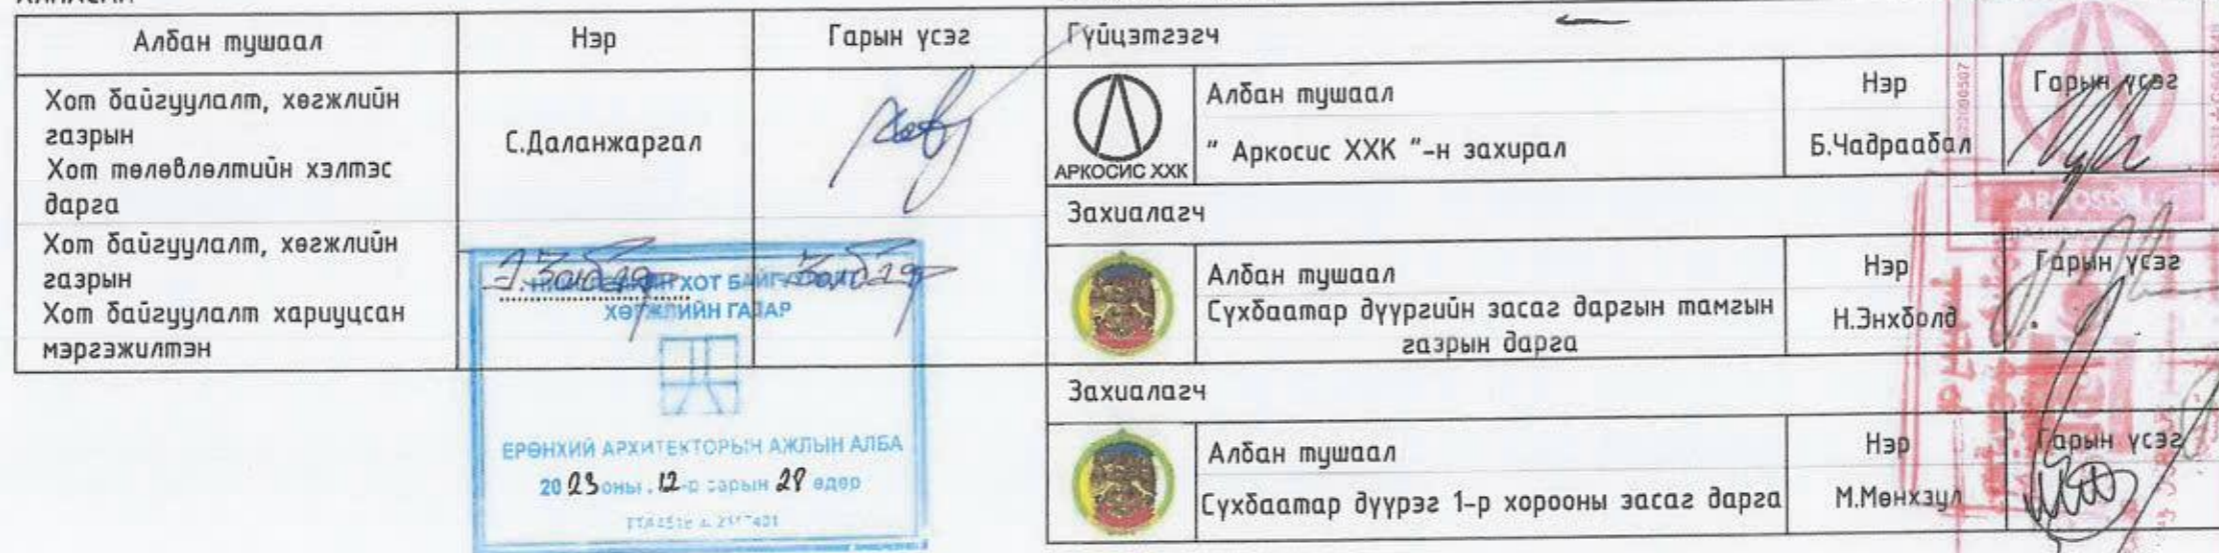 Албан тушаал Нэр Гарын үсэг
Хот байгуулалт, хөгжлийн
газрын
Хот төлөвлөлтийн хэлтэс
дарга
С.Даланжаргал
Хот байгуулалт, хөгжлийн
газрын
Хот байгуулалт хариуцсан
мэргэжилтэн
ХОТ
ХӨГЖЛИЙН ГАЗАР
ЕРӨНХИЙ АРХИТЕКТОРЫН АЖЛЫН АЛБА
2023 оны 12-р сарын 28 өдөр
Гүйцэтгэгч
АРКОСИС ХХК
Албан тушаал Нэр Гарын үсэг
" Аркосис ХХК "-н захирал Б.Чадраабал
Захиалагч
Албан тушаал Нэр Гарын үсэг
Сүхбаатар дүүргийн засаг даргын тамгын
газрын дарга
Н.Энхболд
Захиалагч
Албан тушаал Нэр Гарын үсэг
Сүхбаатар дүүрэг 1-р хорооны засаг дарга М.Мөнхзул